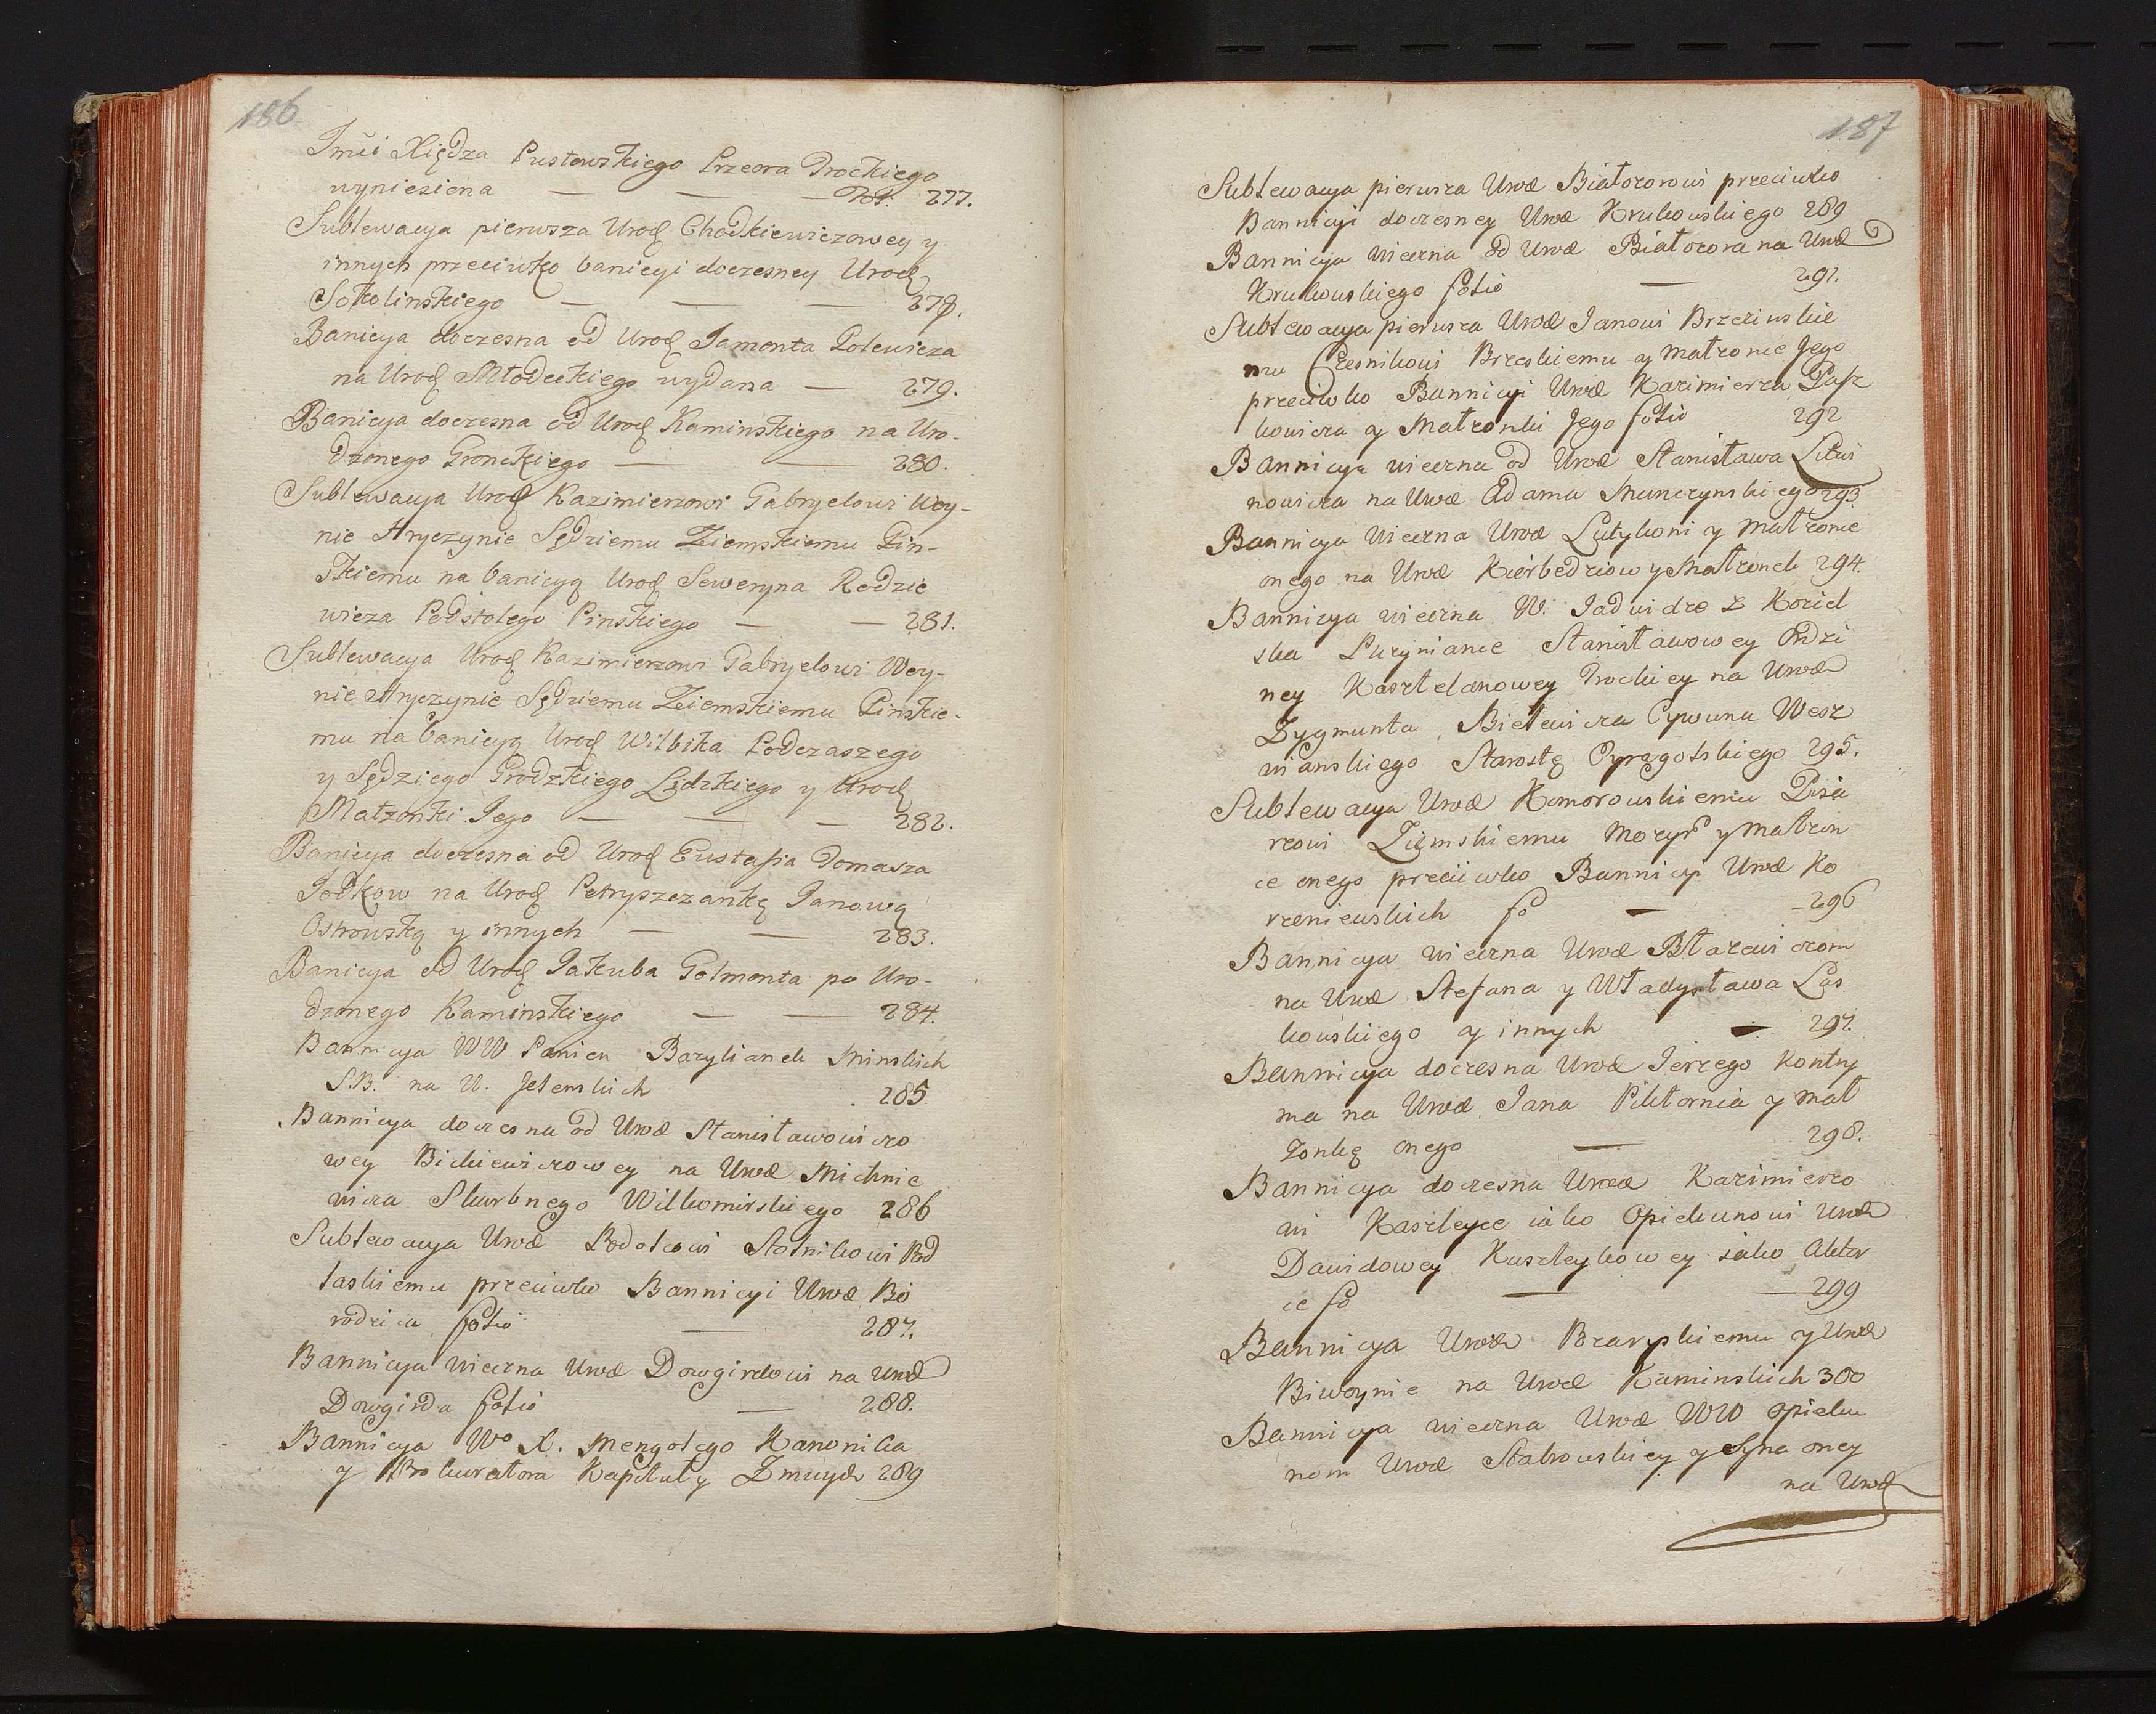 186
Jmći Xiędza Pustowskiego Przeora Trockiego
wyniesiona — — — Fol. 277.
Sublewacya pierwsza Urod Chodkiewiczowey y
innych przeciwko banicyi doczesney Urod
Sokolinskiego — — — 278.
Banicya doczesna od Urod Jamonta Polewicza
na Urod Młodeckiego wydana — 279.
Banicya doczesna od Urod Kaminskiego na Uro-
dzonego Gronckiego — — 280.
Sublewacya Urod Kazimierzowi Gabryelowi Woy-
nie Hryczynie Sędziemu Ziemskiemu Pin-
skiemu na banicyą Urod Seweryna Rodzie
wicza Podstolego Pinskiego — — 281.
Sublewacya Urod Kazimierzowi Gabryelowi Woy-
nie Hryczynie Sędziemu Ziemskiemu Pinskie-
mu na banicyą Urod Wilbika Podczaszego
y Sędziego Grodzkiego Lidzkiego y Urod
Małzonki Jego — — — 282.
Banicya doczesna od Urod Eustafia Tomasza
Jodkow na Urod Petryszczankę Janową
Ostrowską y innych — — 283.
Banicya od Urod Jakuba Golmonta po Uro-
dzonego Kaminskiego — — 284.
Bannicya WW Panien Bazylianek Minskich
S.B. na U. Jelenskich 285
Bannicya doczesna od Urod Stanisławowiczo
wey Bickiewiczowey na Urod Michnie
wicza Skarbnego Wilkomirskiego 286
Sublewacya Urod Podolcowi Stolnikowi Pod
laskiemu przeciwko Bannicyi Urod Bo
rodzica folio — 287.
Bannicya wieczna Urod Dowgirdowi na Urod
Dowgirda folio — 288.
Bannicya Wo X. Mengolego Kanonika
y Prokuratora Kapituły Zmuydz 289
187
Sublewacya pierwsza Urod Białozorowi przeciwko
Bannicyi doczesney Urod Krukowskiego 289
Bannicya wieczna od Urod Białozora na Urod
Krukowskiego folio — 291.
Sublewacya pierwsza Urod Janowi Brzezinskie
mu Czesnikowi Brzeskiemu y Małzonce Jego
przeciwko Bannicyi Urod Kazimierza Pasz
kowicza y Małzonki Jego folio 292
Bannicya wieczna od Urod Stanisława Litwi
nowicza na Urod Adama Manczynskiego 293
Bannicya wieczna Urod Lutykoni y Małzonce
onego na Urod Kierbedziow y Małzonek 294.
Bannicya wieczna W. Jadwidze z Koziel
ska Puzyniance Stanisławowey Odzi
ney Kasztelanowey Trockiey na Urod
Zygmunta Bielewicza Cywuna Wesz
wianskiego Starostę Opragolskiego 295.
Sublewacya Urod Komorowskiemu Pisa
rzowi Ziemskiemu Mozyr y Małzon
ce onego przeciwko Bannicyi Urod Ko
rzeniewskich fo — 296
Bannicya wieczna Urod Błazewiczom
na Urod Stefana y Władysława Las
kowskiego y innych — 297.
Bannicya doczesna Urod Jerzego Kontry
ma na Urod Jana Piktornia y Mał
zonkę onego — 298.
Bannicya doczesna Urod Kazimierzo
wi Kaszleyce iako Opiekunowi Urod
Dawidowey Kaszleykowey iako Aktor
ce fo — — 299
Bannicya Urod Bzarpskiemu y Urod
Biwoynie na Urod Kaminskich 300
Bannicya wieczna Urod WW Opieku
nom Urod Stabrowskiey y Syna oney
na Urod